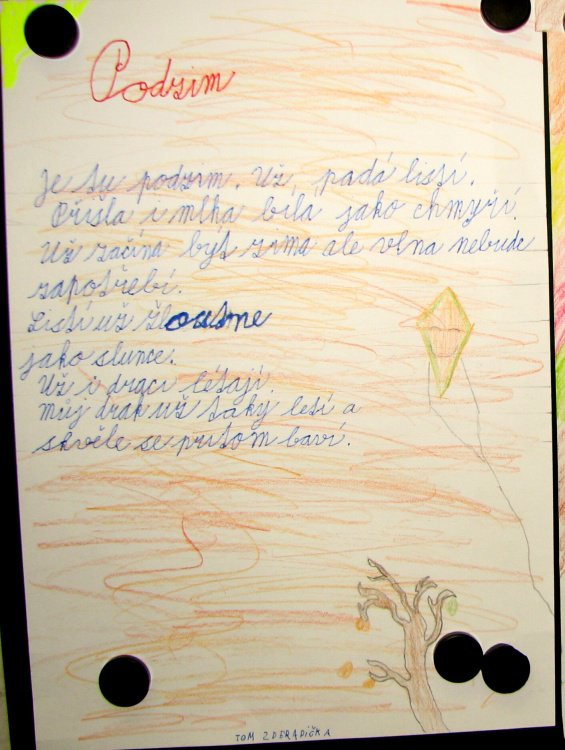 Podzim
Je tu podzim. Už padá listí.
Přišla i mlha bílá jako chmýří.
Už začíná být zima ale vlna nebude
zapotřebí.
Listí už žloutne
jako slunce.
Už i draci létají.
můj drak už taky letí a
skvěle se přitom baví.
TOM ZDERADIČKA